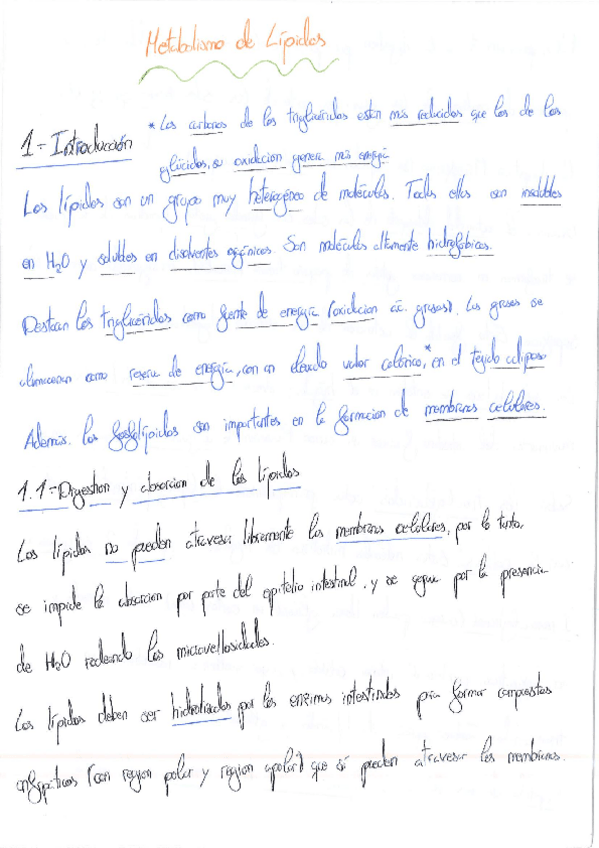 Metabolismo de Lípidos
1.- Introducción
* Los carbonos de los triglicéridos están más reducidos que los de los
glúcidos, su oxidación genera más energía
Los lípidos son un grupo muy heterogéneo de moléculas. Todas ellas son insolubles
en H₂O y solubles en disolventes orgánicos. Son moléculas altamente hidrofóbicas.
Destacan los triglicéridos como fuente de energía (oxidación ác. grasos). Las grasas se
almacenan como reserva de energía, con un elevado valor calórico,* en el tejido adiposo
Además. los fosfolípidos son importantes en la formación de membranas celulares.
1.1.- Digestión y absorción de los lípidos
Los lípidos no pueden atravesar libremente las membranas celulares, por lo tanto,
se impide la absorción por parte del epitelio intestinal. y se sigue por la presencia
de H₂O rodeando las microvellosidades.
Los lípidos deben ser hidrolizados por las enzimas intestinales para formar compuestos
anfipáticos (con región polar y región apolar) que sí pueden atravesar las membranas.